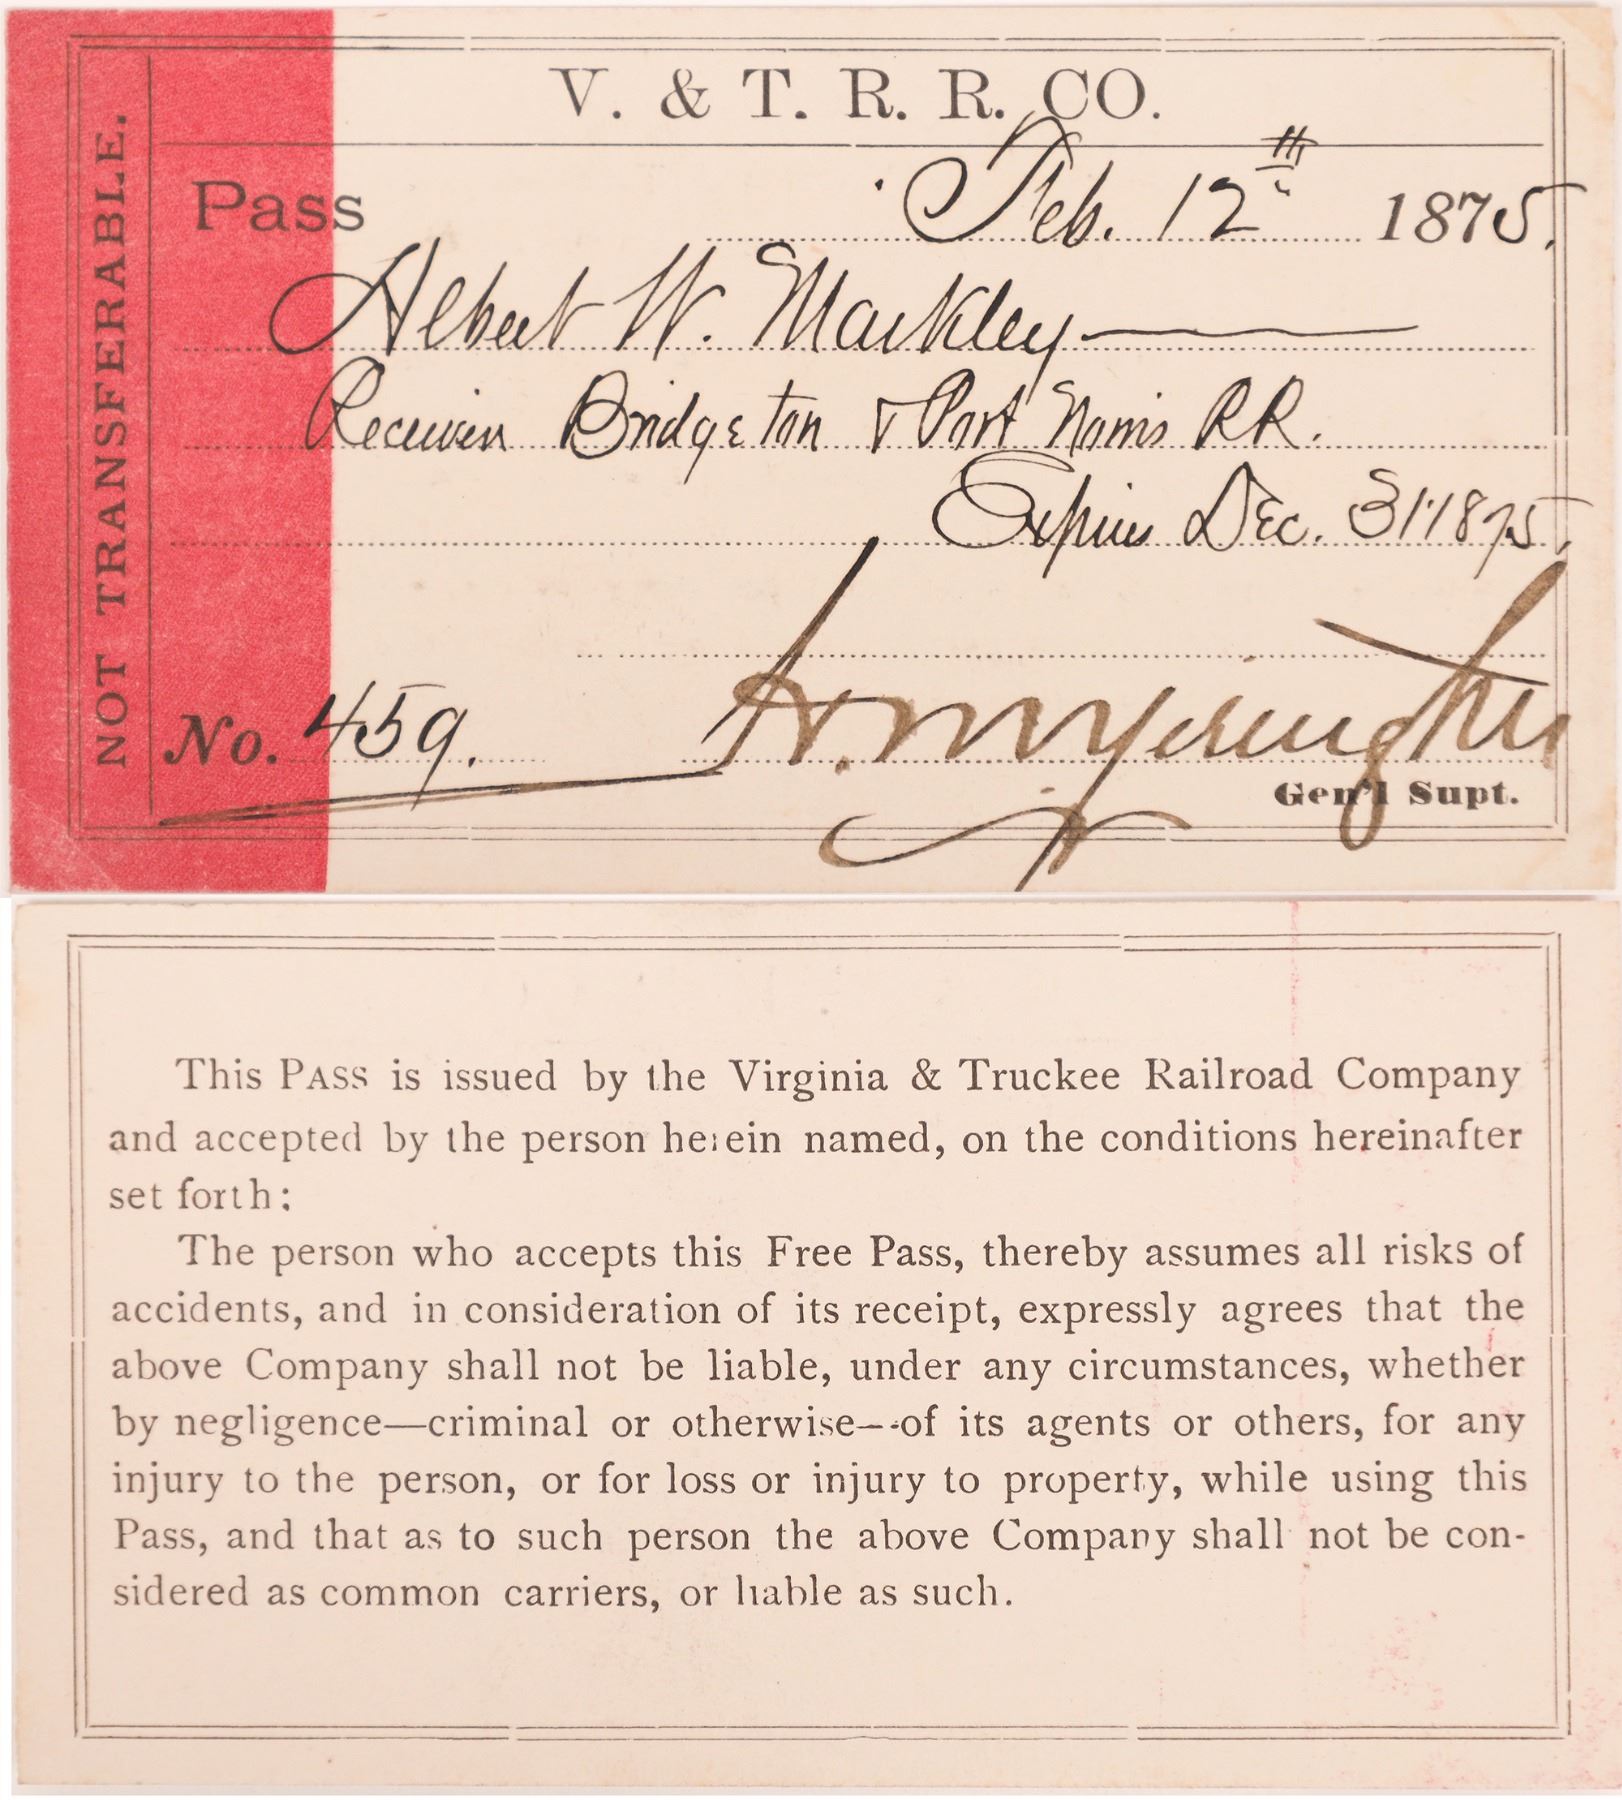 V. & T. R. R. CO.
NOT TRANSFERABLE.
Pass Feb. 12th 1875.
Albert W. Markley
Receiver Bridgeton & Port Norris RR.
Expires Dec. 31 1875.
No. 459. H. M. Yerington
Gen'l Supt.
This PASS is issued by the Virginia & Truckee Railroad Company
and accepted by the person herein named, on the conditions hereinafter
set forth:
The person who accepts this Free Pass, thereby assumes all risks of
accidents, and in consideration of its receipt, expressly agrees that the
above Company shall not be liable, under any circumstances, whether
by negligence—criminal or otherwise—of its agents or others, for any
injury to the person, or for loss or injury to property, while using this
Pass, and that as to such person the above Company shall not be con-
sidered as common carriers, or liable as such.